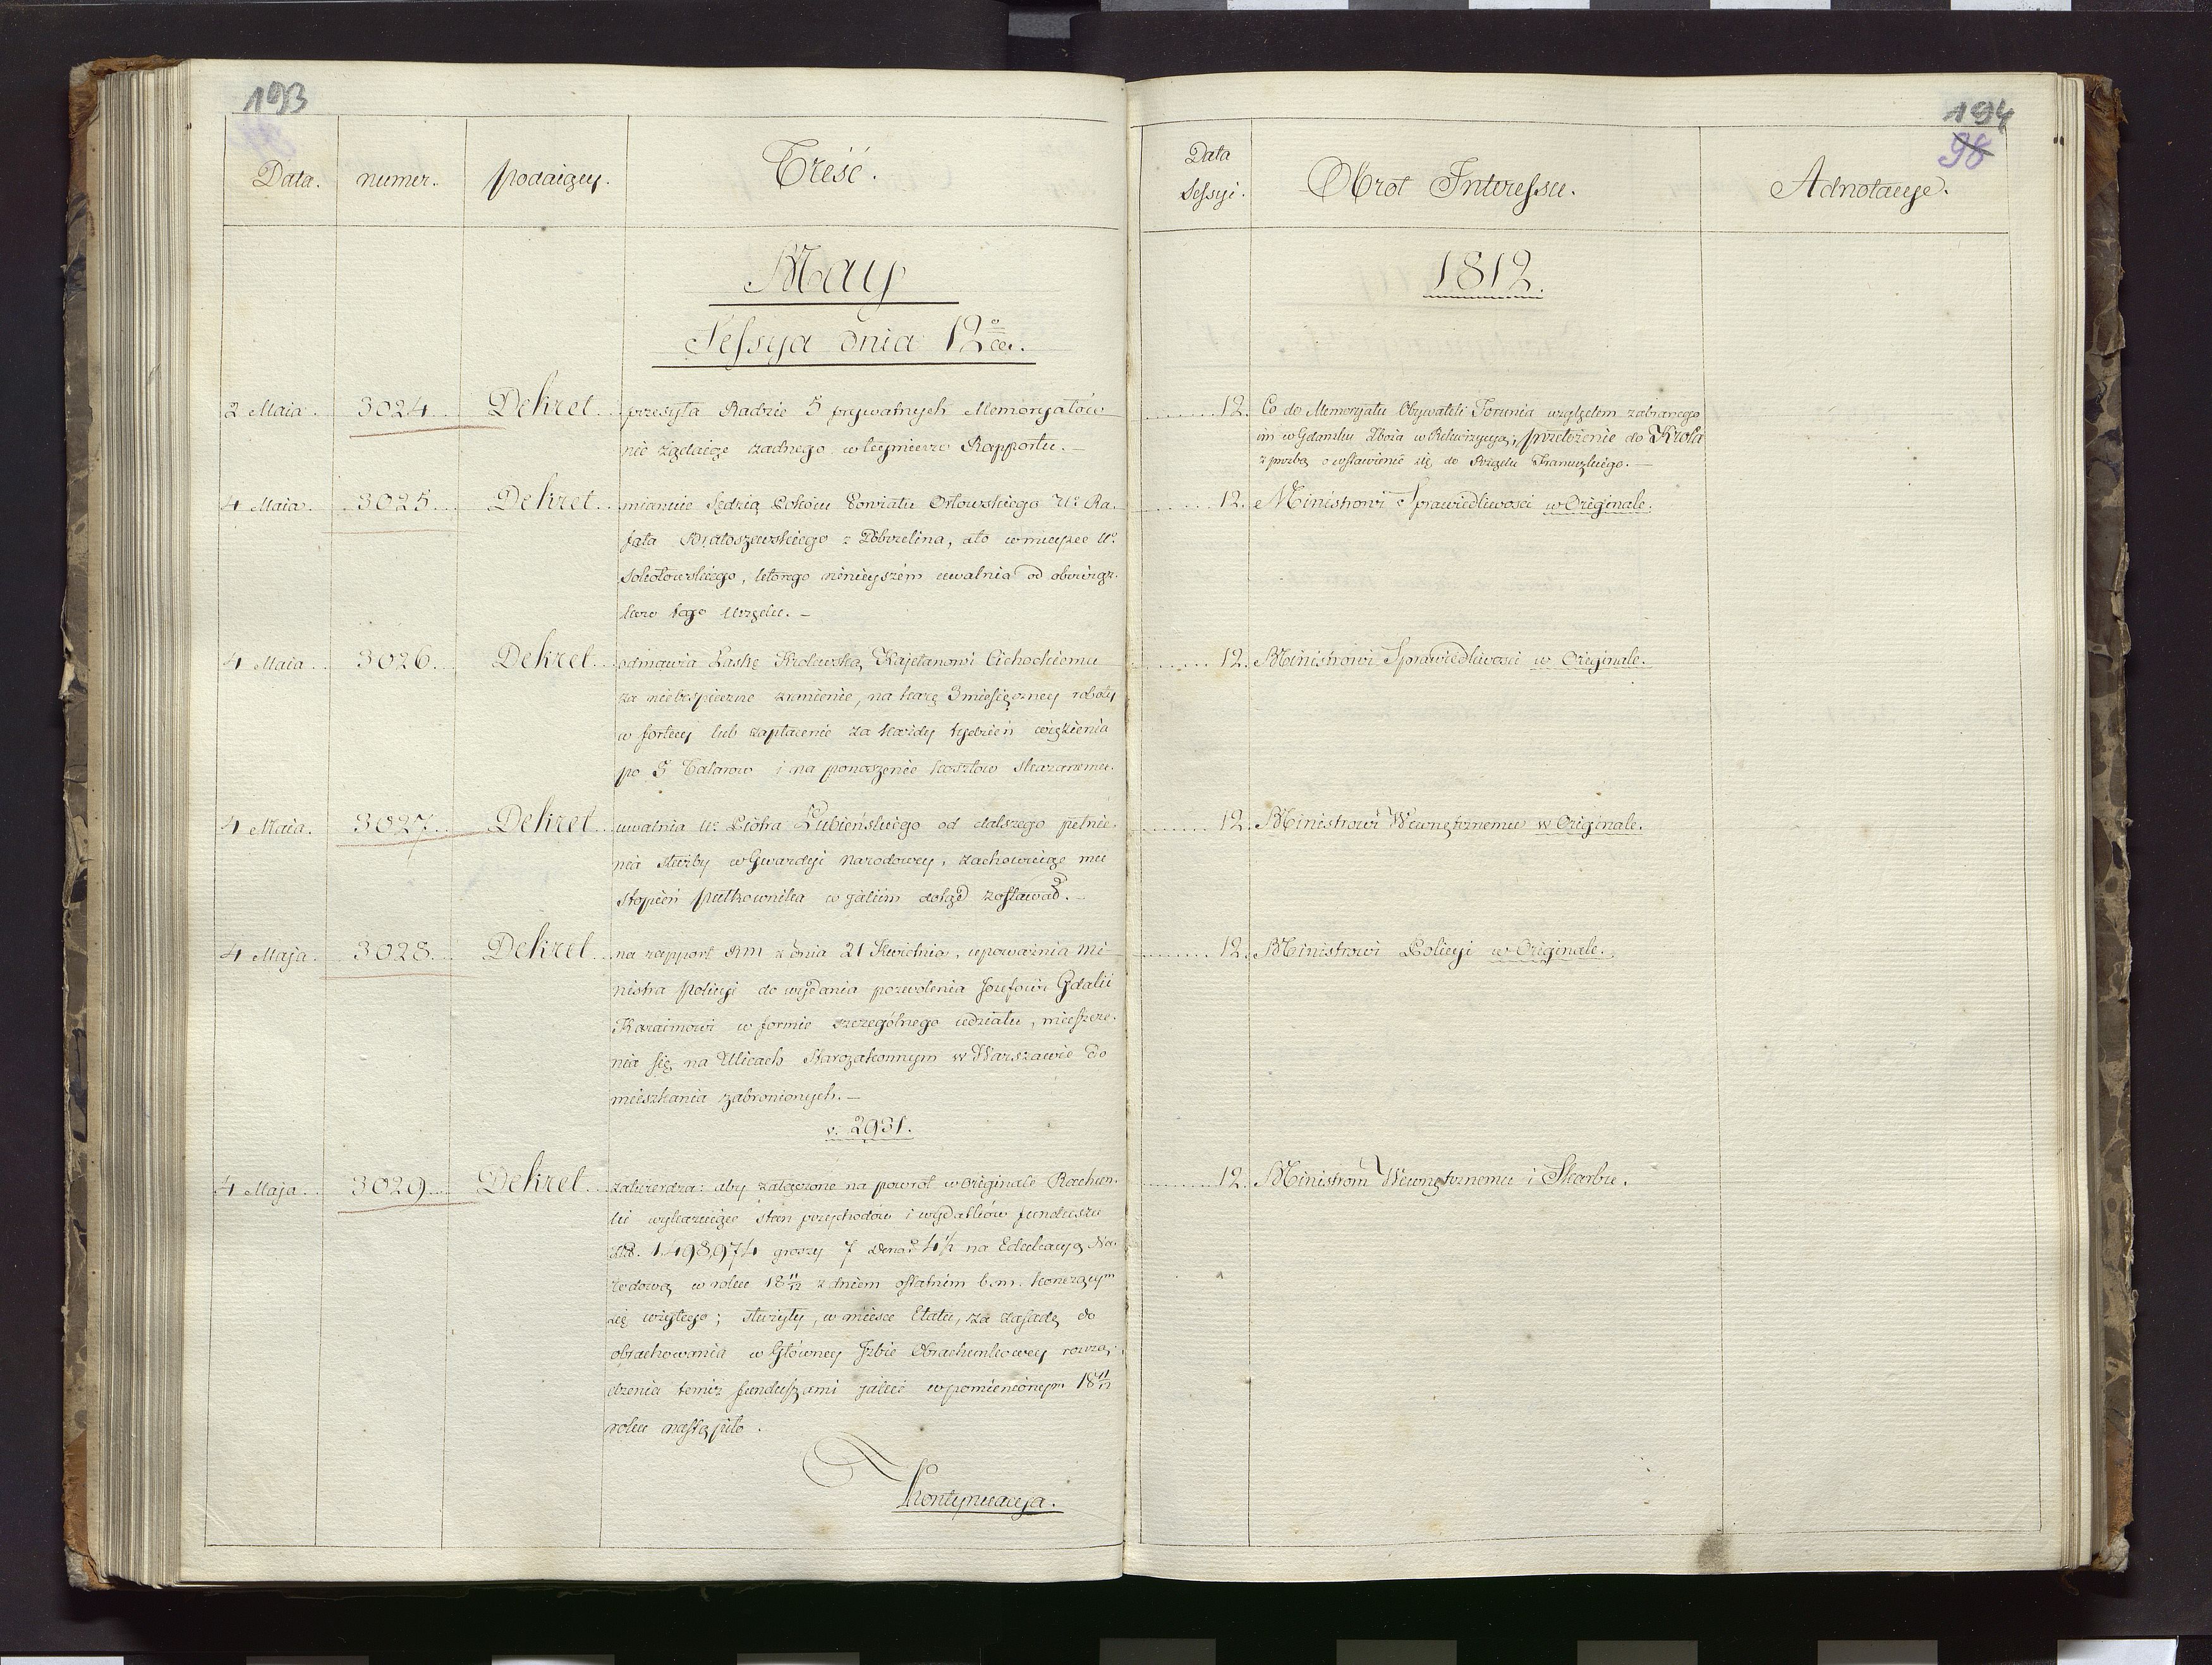 193
Data. numer. podaiący. Treść.
May
Sessya dnia 12º
2 Maia. 3024. Dekret przesyła Radzie 5 prywatnych Memoryałów
nie żądaiąc żadnego w tey mierze Rapportu. —
4 Maia. 3025. Dekret mianuie Sędzią Pokoiu Powiatu Orłowskiego Uº Ra-
fała Białoszewskiego z Dobrzelina, a to w mieysce Uº
Sokołowskiego, którego nineyszém uwalnia od obowiąz-
ków tego Urzędu. —
4 Maia. 3026. Dekret odmawia Łaskę Krolewską Kajetanowi Cichockiemu
za niebespieczne zranienie, na karę 3 miesięczney roboty
w fortecy lub zapłacenie za każdy tydzień więzienia
po 5 Talarow i na ponoszenie kosztow skazanemu.
4 Maia. 3027. Dekret uwalnia Uº Piotra Łubieńskiego od dalszego pełnie-
nia służby w Gwardyi Narodowey, zachowuiąc mu
stopień pułkownika w jakim dotąd zostawał. —
4 Maja. 3028. Dekret na rapport RM z dnia 21 Kwietnia, upoważnia Mi-
nistra Policyi do wydania pozwolenia Jozefowi Gdalii
Karaimowi w formie szczególnego udziału, mieszcze-
nia się na Ulicach Starozakonnym w Warszawie do
mieszkania zabronionych. —
v. 2931.
4 Maja. 3029. Dekret zatwierdza: aby załączone na powrót w Originale Rachun-
ki wykazuiące stan przychodów i wydatków funduszu
Złł. 1,498,974 groszy 7 dena: 4½ na Edukacyą Na-
rodową w roku 18 11/12 z dniem ostatnim b. m. kończącym
się wziętego; służyły, w miesce Etatu, za zasadę do
obrachowania w Główney Izbie Obrachunkowey rozrzą-
dzenia temiż funduszami jakie w pomienionym 18 11/12
roku nastąpiło.
Kontynuacya.
194
98
Data Sessyi. Obrot Interessu. Adnotacye.
1812.
12. Co do Memoryału Obywateli Torunia względem zabranego
im w Gdańsku Zboża w Rekwizycyą, przełożenie do Króla
z prozbą o wstawienie się do Rządu Francuzkiego. —
12. Ministrowi Sprawiedliwosci w Originale.
12. Ministrowi Sprawiedliwosci w Originale.
12. Ministrowi Wewnętrznemu w Originale.
12. Ministrowi Policyi w Originale.
12. Ministrom Wewnętrznemu i Skarbu.